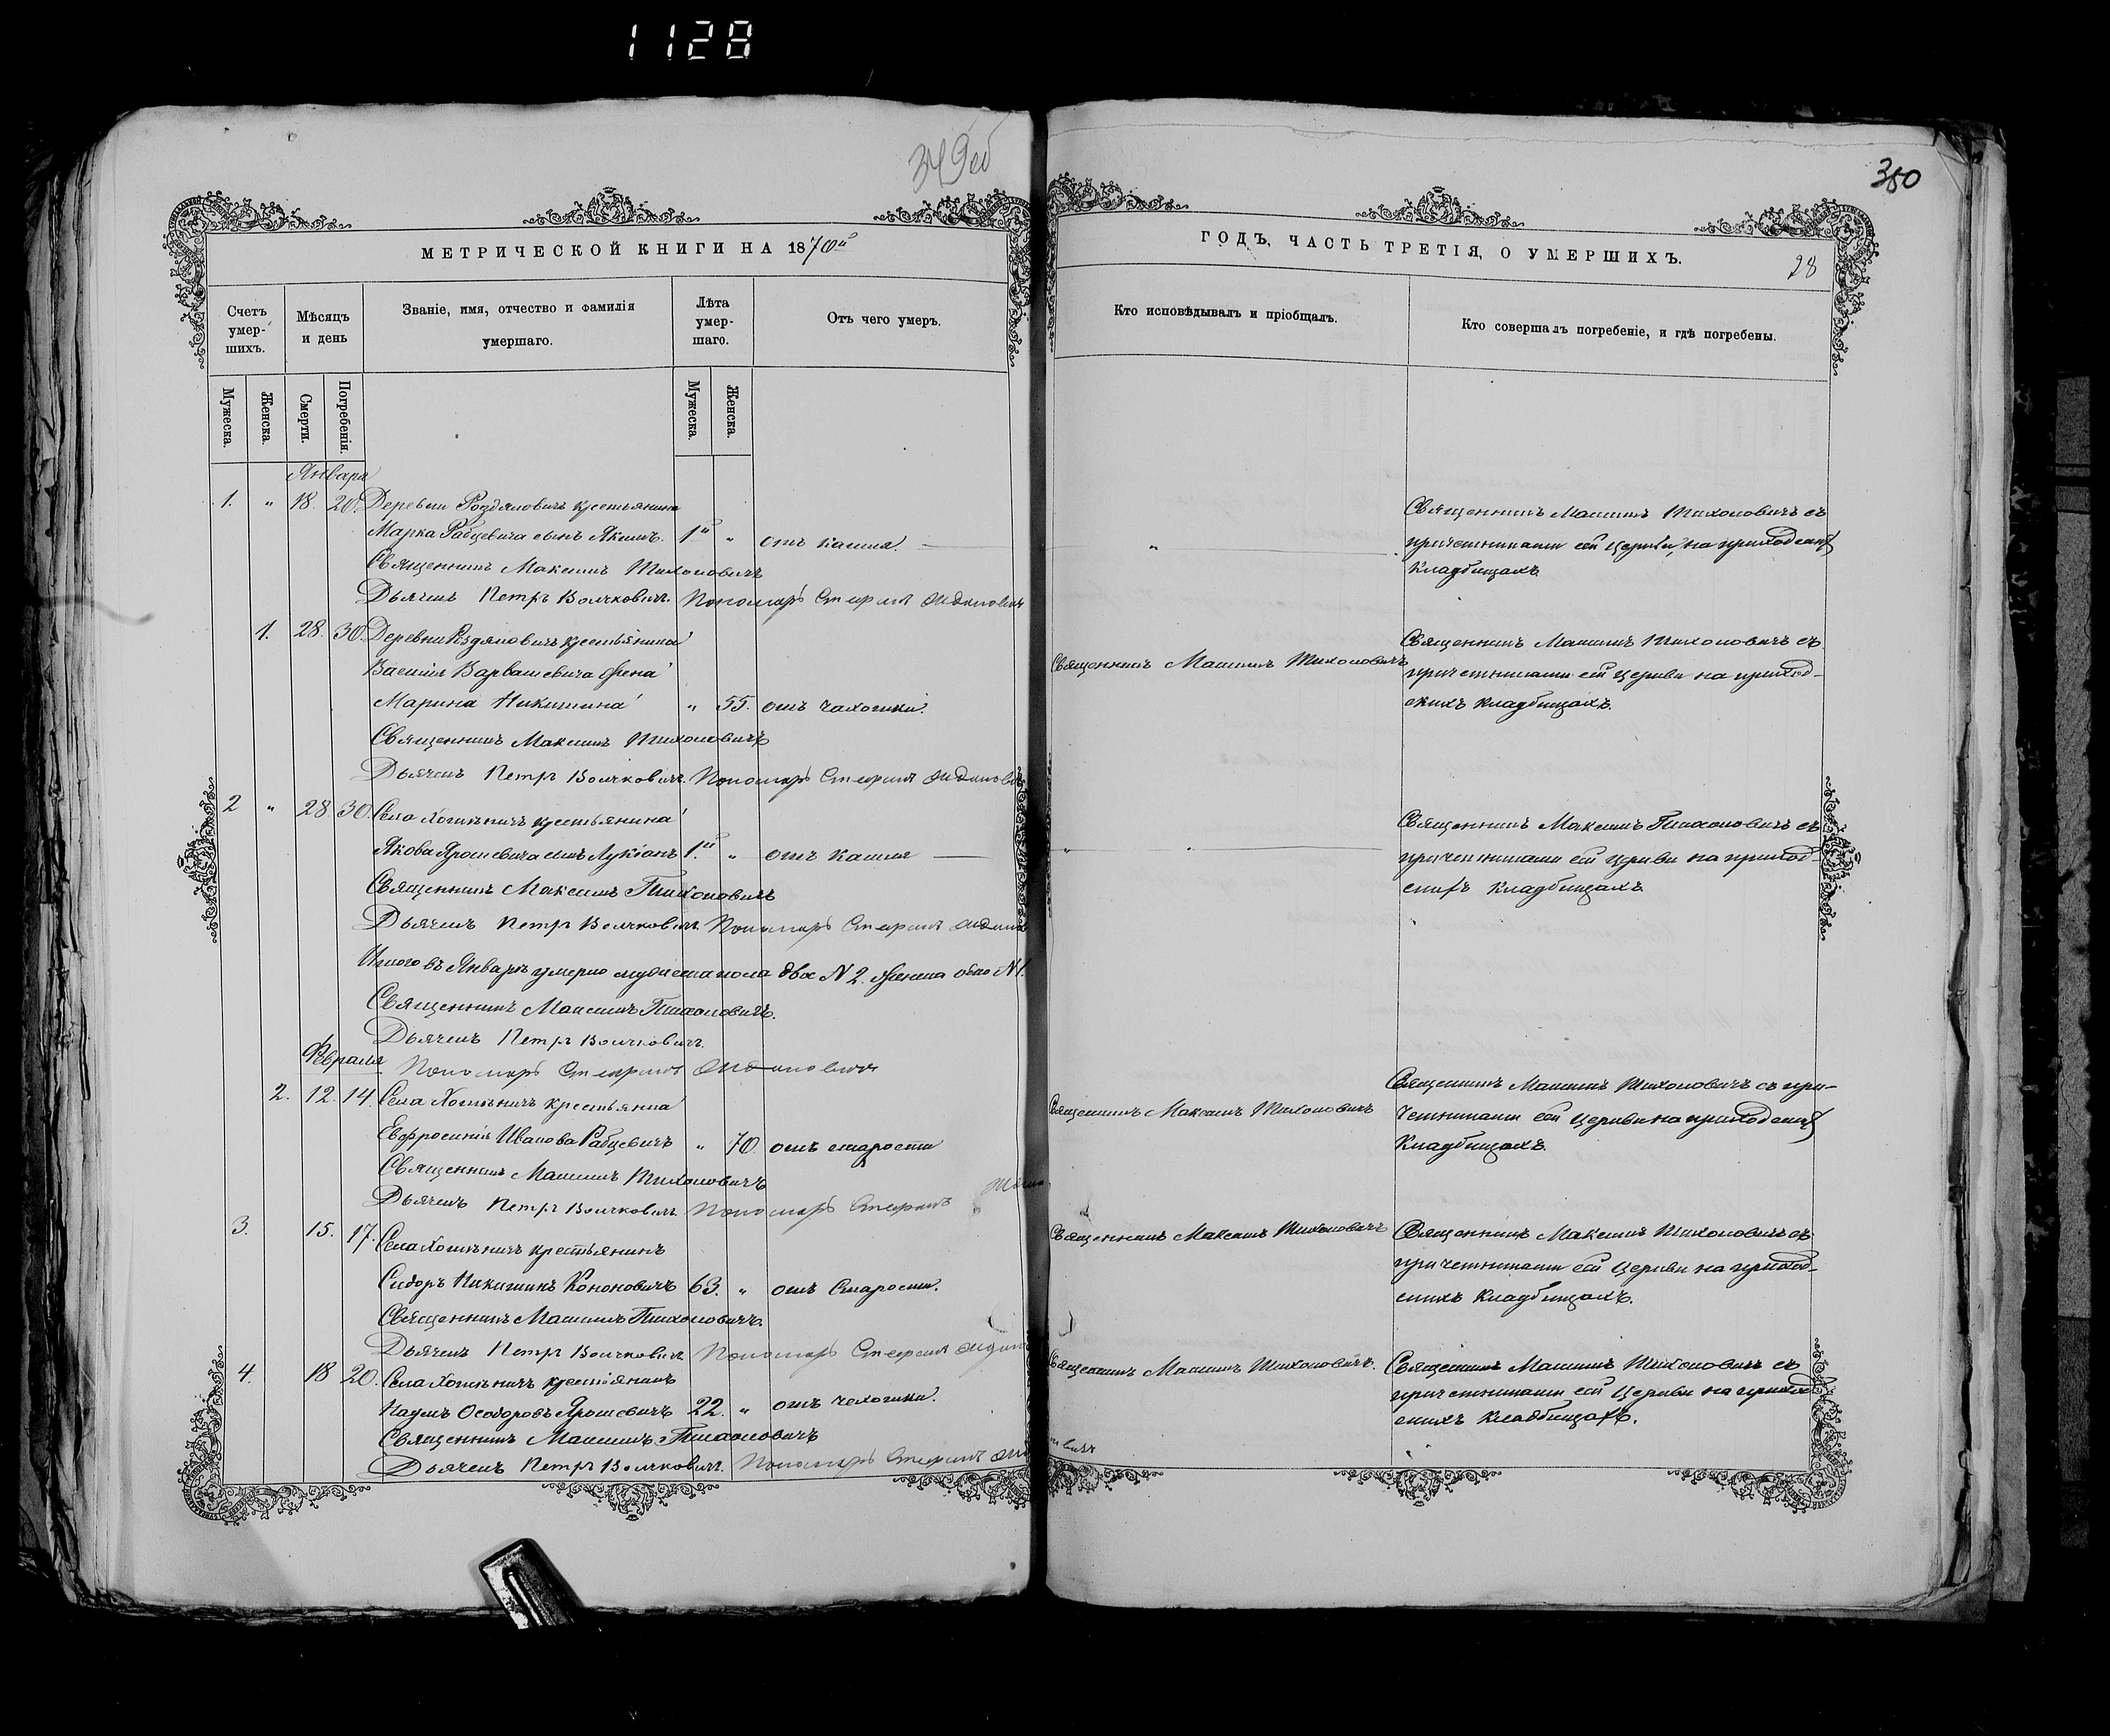 1128
349об
350
МЕТРИЧЕСКОЙ КНИГИ НА 1870й
ГОДЪ, ЧАСТЬ ТРЕТІЯ, О УМЕРШИХЪ.
28
Счетъ умер-шихъ.
Мѣсяцъ и день
Званіе, имя, отчество и фамилія умершаго.
Лѣта умер-шаго.
Отъ чего умеръ.
Кто исповѣдывалъ и пріобщалъ.
Кто совершалъ погребеніе, и гдѣ погребены.
Мужеска.
Женска.
Смерти.
Погребенія.
Мужеска.
Женска.
Января
1. " 18. 20. Деревни Роздяловичъ крестьянина
Марка Рабцевича сынъ Якимъ. 1й " отъ кашля.
Священникъ Максимъ Тихоновичъ
Дьячекъ Петръ Волчковичъ. Пономарь Стефанъ
"
Священникъ Максимъ Тихоновичъ съ
причетниками сей Церкви, на приходскихъ
Кладбищахъ
1. 28. 30. Деревни Роздяловичъ крестьянина
Василія Варвашевича жена
Марина Никитина " 55. отъ чахотки.
Священникъ Максимъ Тихоновичъ
Дьячекъ Петръ Волчковичъ. Пономарь Стефанъ
Священникъ Максимъ Тихоновичъ
Священникъ Максимъ Тихоновичъ съ
причетниками сей Церкви на приход-
скихъ Кладбищахъ.
2 " 28. 30. Села Хотыничъ крестьянина
Якова Ярошевича сынъ Лукіанъ 1й. " отъ кашля
Священникъ Максимъ Тихоновичъ
Дьячекъ Петръ Волчковичъ. Пономарь Стефанъ
" "
Священникъ Максимъ Тихоновичъ съ
причетниками сей Церкви на приход-
скихъ Кладбищахъ
Итого въ Январѣ умерло мужеска пола двое N 2. женска одно N 1.
Священникъ Максимъ Тихоновичъ.
Дьячекъ Петръ Волчковичъ.
Февраля
Пономарь Стефанъ
2. 12. 14. Села Хотыничъ крестьянка
Евфросинія Иванова Рабцевичъ " 70. отъ старости
Священникъ Максимъ Тихоновичъ
Дьячекъ Петръ Волчковичъ. Пономарь Стефанъ
Священникъ Максимъ Тихоновичъ
Священникъ Максимъ Тихоновичъ съ при-
четниками сей Церкви на приходскихъ
Кладбищахъ.
3. 15. 17. Села Хотыничъ крестьянинъ
Сидоръ Никитинъ Кононовичъ 63. " отъ Старости.
Священникъ Максимъ Тихоновичъ.
Дьячекъ Петръ Волчковичъ Пономарь Стефанъ
Священникъ Максимъ Тихоновичъ
Священникъ Максимъ Тихоновичъ съ
причетниками сей Церкви на приход-
скихъ Кладбищахъ.
4. 18 20. Села Хотыничъ крестьянинъ
Наумъ Ѳеодоровъ Ярошевичъ 22. " отъ чахотки.
Священникъ Максимъ Тихоновичъ
Дьячекъ Петръ Волчковичъ. Пономарь Стефанъ
Священникъ Максимъ Тихоновичъ.
Священникъ Максимъ Тихоновичъ съ
причетниками сей Церкви на приход
скихъ Кладбищахъ.